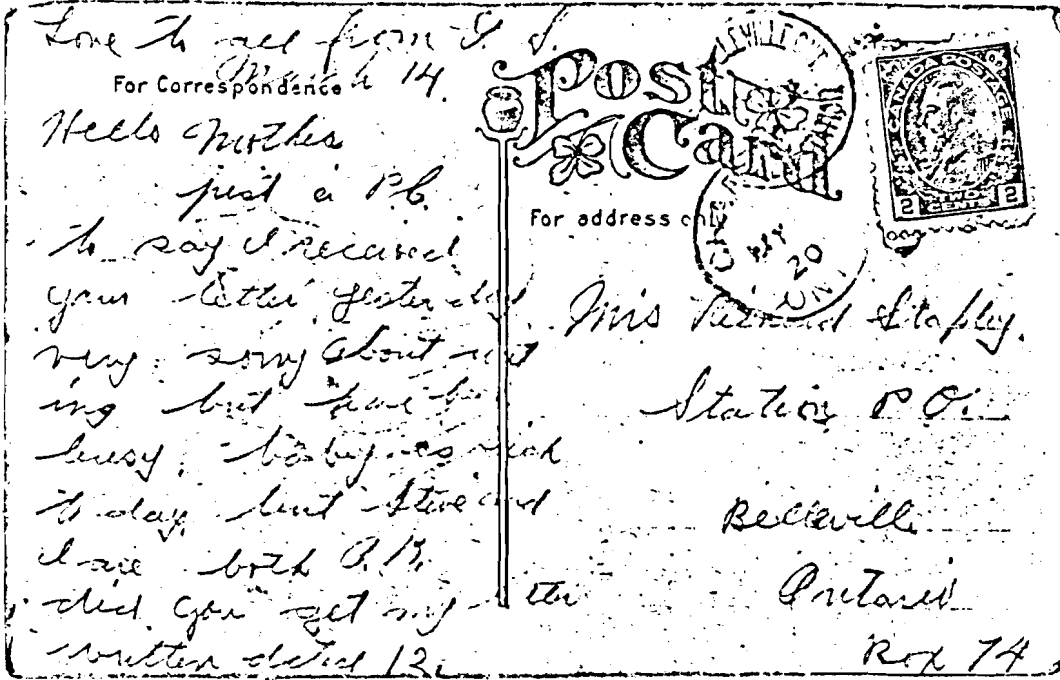 Love to all from S. S.
For Correspondence
March 14.
Hello Mother
just a P.C.
to say I received
your letter yesterday
very sorry about writ
ing but have been
busy, baby is sick
to day, but Steve and
I are both O.K.
did you get my letter
written dated 12.
Post
Card
For address only
BELLEVILLE ONT
20
ONT
CANADA POSTAGE
2 TWO CENTS 2
Mrs Stapley.
Station P.O.
Belleville
Ontario
Box 74